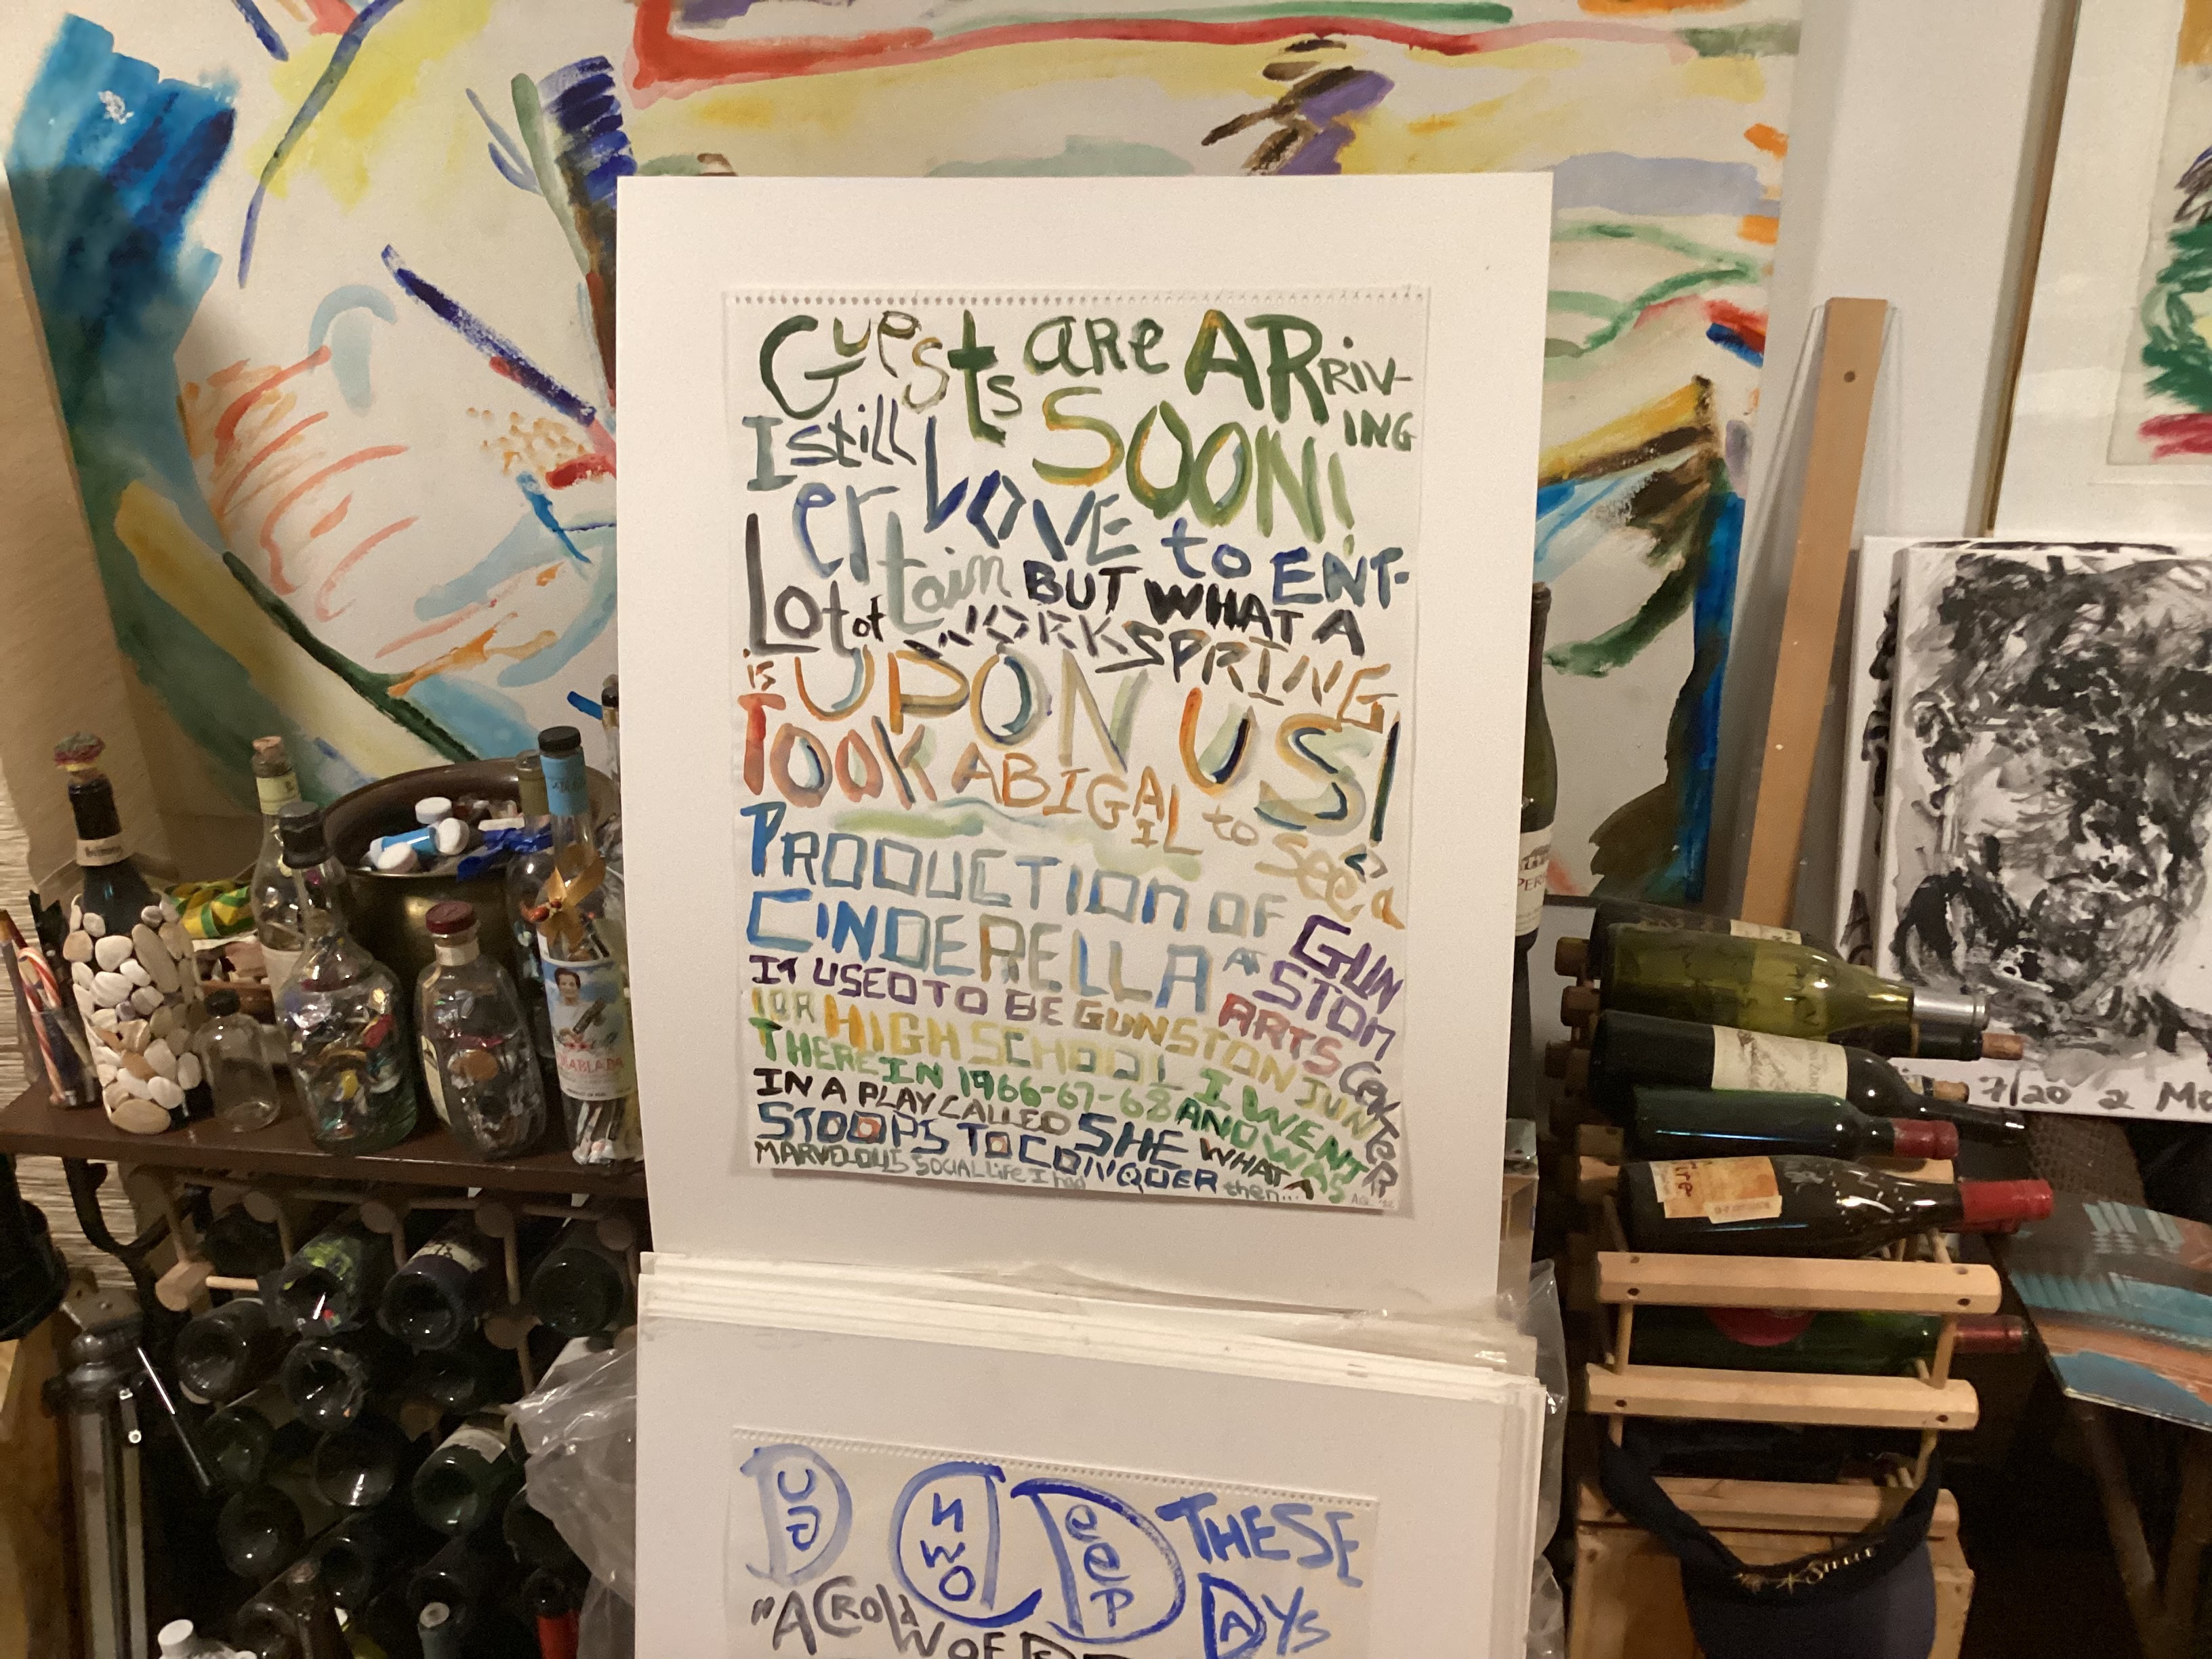 Guests are ARRIV-
ING
SOON!
I still LOVE to ENT-
ertain BUT WHAT A
Lot of WORK SPRING
is UPON US!
TOOK ABIGAIL to see a
PRODUCTION OF
CINDERELLA AT GUN
STON
ARTS
CENTER
IT USED TO BE GUNSTON JUN
IOR HIGH SCHOOL I WENT
THERE IN 1966-67-68 AND WAS
IN A PLAY CALLED SHE
STOOPS TO CONQUER WHAT A
MARVELOUS SOCIAL LIFE I had then...
DUG
DOWN
DEEP
THESE
DAYS
"A CROWD OF
7/20
STEELE